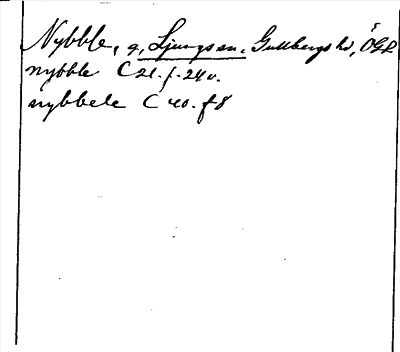 Nybble, g, Ljungs sn. Gullbergs hd, ÖGL
nybble C 21. f. 24 v.
nybbele C 20. f 8